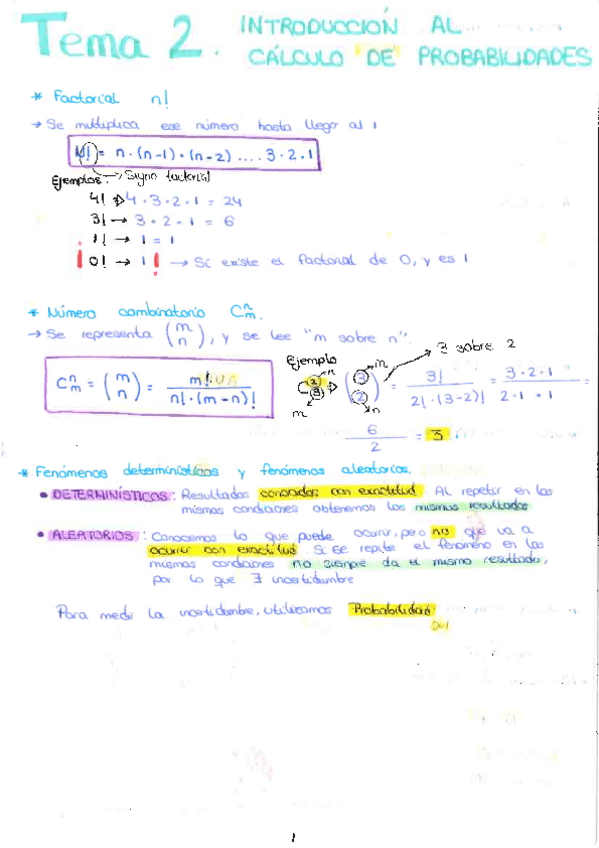 Tema 2. INTRODUCCIÓN AL
CÁLCULO DE PROBABILIDADES
* Factorial n!
→ Se multiplica ese número hasta llegar al 1
N! = n·(n-1)·(n-2)....3·2·1
Ejemplos: → Signo factorial
4! → 4·3·2·1 = 24
3! → 3·2·1 = 6
1! → 1 = 1
¡ 0! → 1 ! → Sí existe el factorial de 0, y es 1
* Número combinatorio Cⁿₘ.
→ Se representa (m n), y se lee "m sobre n".
Ejemplo → n → m → 3 sobre 2
Cⁿₘ = (m n) = m! / n!·(m-n)!
C 2 3 → (3 2) = 3! / 2!·(3-2)! = 3·2·1 / 2·1·1 =
m n
6 / 2 = 3
* Fenómenos determinísticos y fenómenos aleatorios.
• DETERMINÍSTICOS: Resultados conocidos con exactitud. AL repetir en las
mismas condiciones obtenemos los mismos resultados
• ALEATORIOS: Conocemos lo que puede ocurrir, pero no que va a
ocurrir con exactitud. Si se repite el fenómeno en las
mismas condiciones no siempre da el mismo resultado,
por lo que ∃ incertidumbre
Para medir la incertidumbre, utilizamos Probabilidad
1